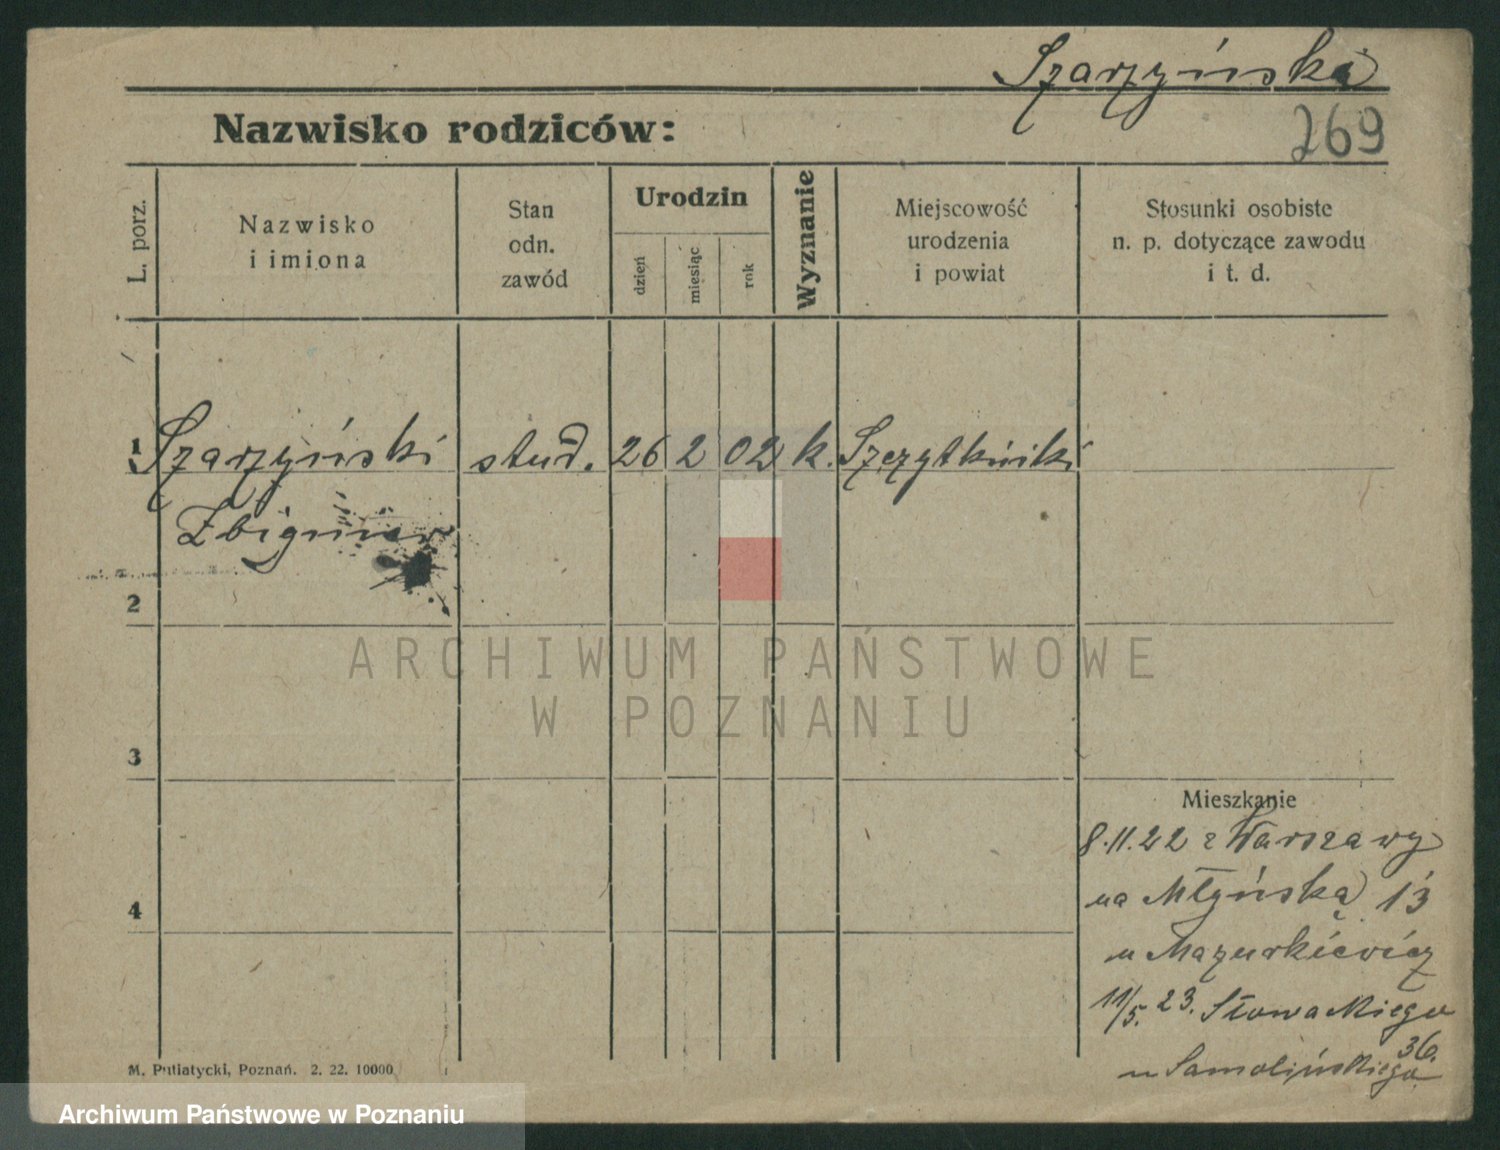 Szarzyński
269
Nazwisko rodziców:
L. porz.
Nazwisko
i imiona
Stan
odn.
zawód
Urodzin
dzień
miesiąc
rok
Wyznanie
Miejscowość
urodzenia
i powiat
Stosunki osobiste
n. p. dotyczące zawodu
i t. d.
1 Szarzyński stud. 26 2 02 k. Szczytkiniki
Zbigniew
2
ARCHIWUM PAŃSTWOWE
W POZNANIU
3
Mieszkanie
8.11.22 z Warszawy
4
na Młyńską 13
u Mazurkiewicz
11/5. 23. Słowackiego
36.
u Samolińskiego
M. Putiatycki, Poznań. 2. 22. 10000
Archiwum Państwowe w Poznaniu